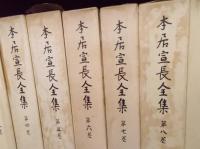 本居宣長全集 第四巻
本居宣長全集 第五巻
本居宣長全集 第六巻
本居宣長全集 第七巻
本居宣長全集 第八巻